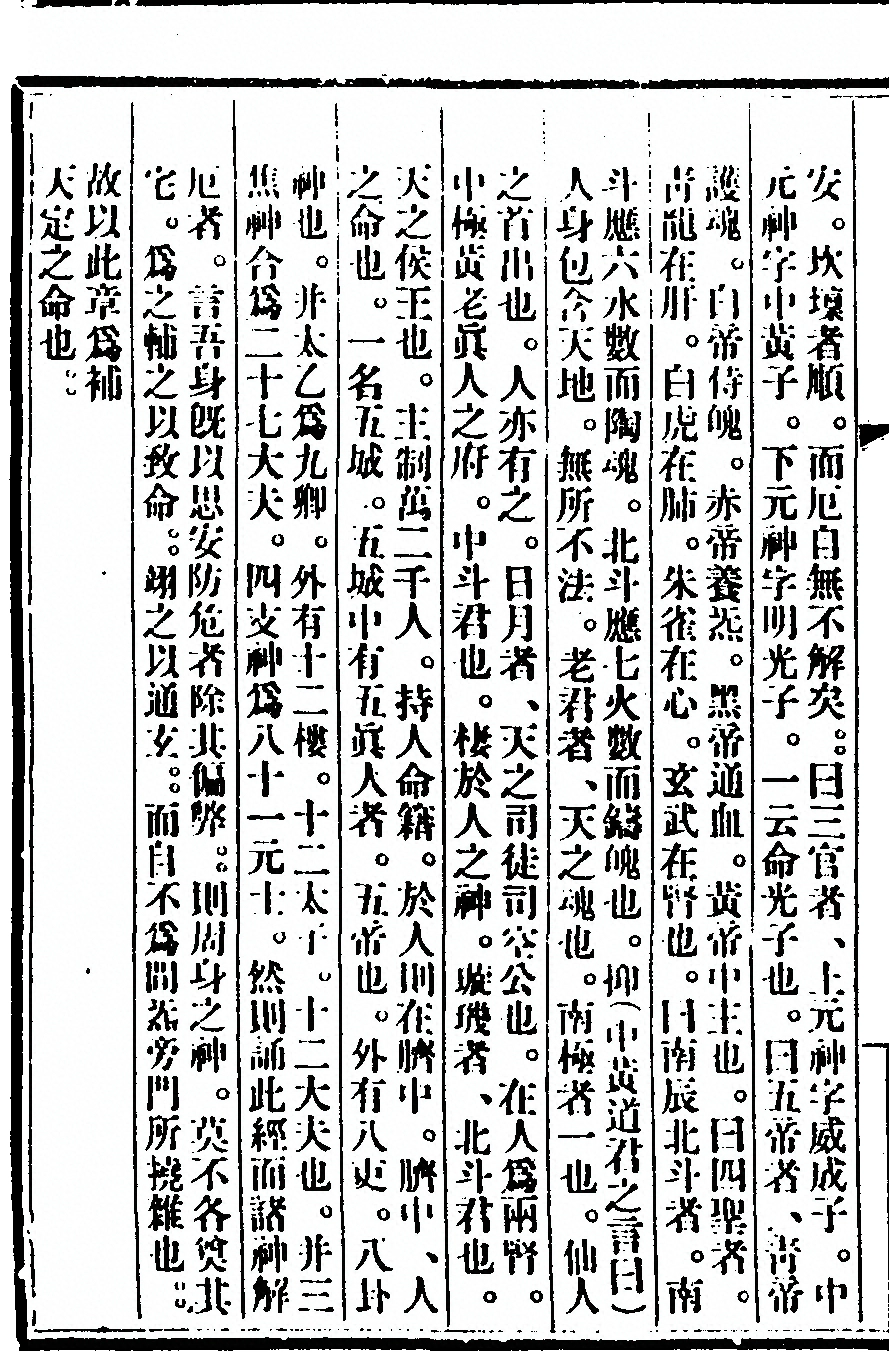 安。坎壇者順。而厄自無不解矣。曰三官者、上元神字威成子。中
元神字中黃子。下元神字明光子。一云命光子也。曰五帝者、靑帝
護魂。白帝侍魄。赤帝養炁。黑帝通血。黃帝中主也。曰四聖者。
靑龍在肝。白虎在肺。朱雀在心。玄武在腎也。曰南辰北斗者。南
斗應六水數而陶魂。北斗應七火數而鑄魄也。抑（中黃道君之言曰）
人身包含天地。無所不法。老君者、天之魂也。南極者一也。仙人
之首出也。人亦有之。日月者、天之司徒司空公也。在人爲兩腎。
中極黃老眞人之府。中斗君也。棲於人之神。璇璣者、北斗君也。
天之侯王也。主制萬二千人。持人命籍。於人則在臍中。臍中、人
之命也。一名五城。五城中有五眞人者。五帝也。外有八吏。八卦
神也。幷太乙爲九卿。外有十二樓。十二太子。十二大夫也。幷三
焦神合爲二十七大夫。四支神爲八十一元士。然則誦此經而諸神解
厄者。言吾身旣以思安防危者除其偏弊。則周身之神。莫不各奠其
宅。爲之輔之以致命。翊之以通玄。而自不爲間炁旁門所撓雜也。
故以此章爲補
天定之命也。